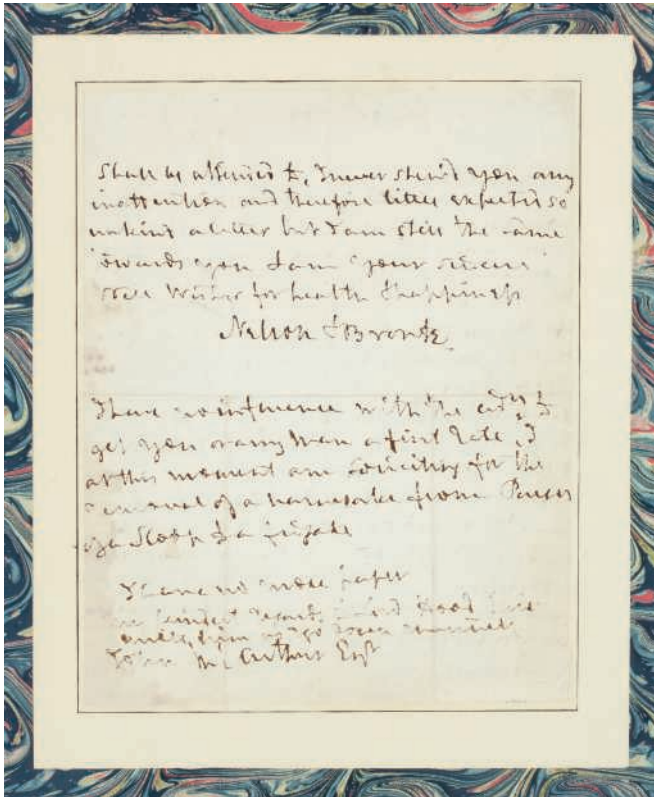 Shall be attended to, I never shew'd you any
inattention and therefore little expected so
unkind a letter but I am still the same
towards you I am your sincere
wishes for health & happiness
Nelson & Bronte
I have no influence with the Ady. to
get you or any Man a first Rate, I
at this moment am soliciting for the
removal of a namesake from Purser
of a Sloop to a frigate
I have no more paper
kindest regards Lord Hood
John McArthur Esqr